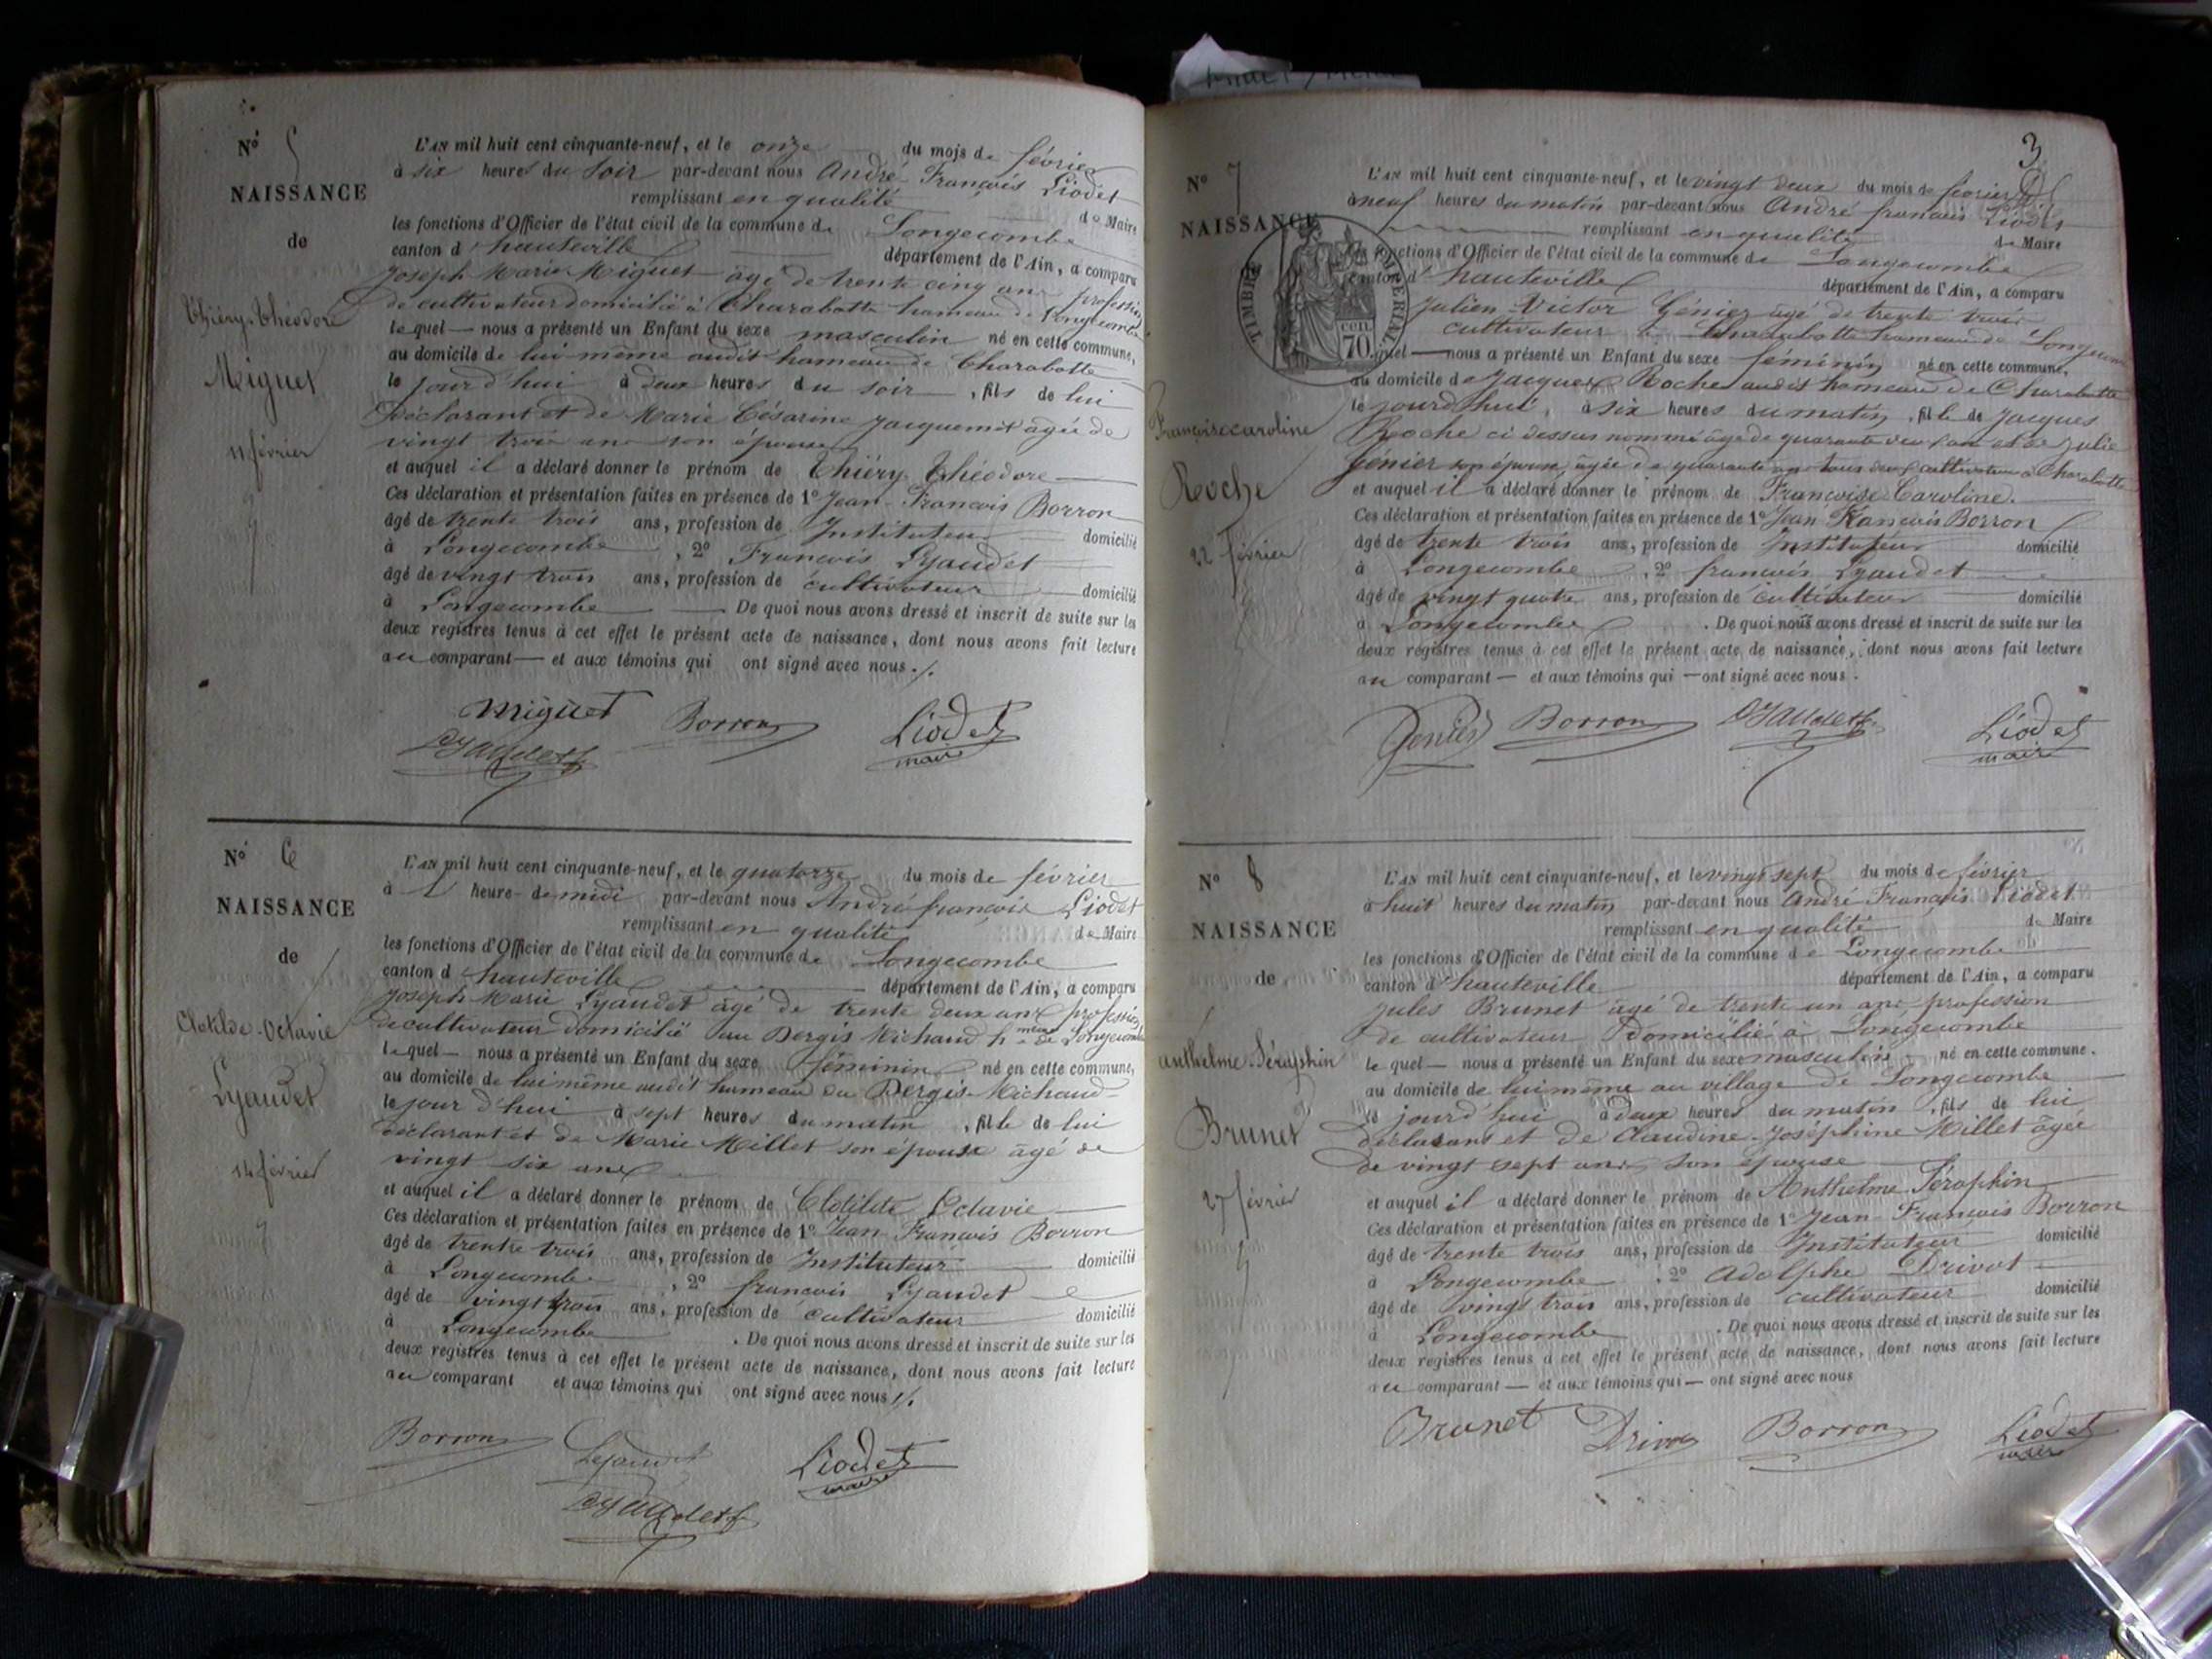 N° 5
NAISSANCE
de
Thiéry-Théodore
Miguet
11 février
L'AN mil huit cent cinquante-neuf, et le onze du mois de février
à six heures du soir par-devant nous André François Liodet
remplissant en qualité de Maire
les fonctions d'Officier de l'état civil de la commune de Longecombe
canton d'hauteville département de l'Ain, a comparu
Joseph Marie Miguet âgé de trente cinq ans profession
de cultivateur domicilié à Charabotte hameau de Longecombe
lequel — nous a présenté un Enfant du sexe masculin né en cette commune,
au domicile de lui-même audit hameau de Charabotte
le jourd'hui à deux heures du soir, fils de lui
déclarant et de Marie Césarine Jacquemet âgée de
vingt trois ans son épouse
et auquel il a déclaré donner le prénom de Thiéry Théodore
Ces déclaration et présentation faites en présence de 1° Jean-François Borron
âgé de trente trois ans, profession de Instituteur domicilié
à Longecombe, 2° François Lyaudet
âgé de vingt trois ans, profession de cultivateur domicilié
à Longecombe De quoi nous avons dressé et inscrit de suite sur les
deux registres tenus à cet effet le présent acte de naissance, dont nous avons fait lecture
au comparant — et aux témoins qui ont signé avec nous ./.
Miguet Borron Liodet
Lyaudet maire
N° 6
NAISSANCE
de
Clotilde-Octavie
Lyaudet
14 février
L'AN mil huit cent cinquante-neuf, et le quatorze du mois de février
à 1 heure de midi par-devant nous André françois Liodet
remplissant en qualité de Maire
les fonctions d'Officier de l'état civil de la commune de Longecombe
canton d hauteville département de l'Ain, a comparu
Joseph Marie Lyaudet âgé de trente deux ans profession
de cultivateur domicilié au Dergis Michaud h meau de Longecombe
lequel — nous a présenté un Enfant du sexe féminin né en cette commune,
au domicile de lui même audit hameau du Dergis-Michaud
le jour d'hui à sept heures du matin, fille de lui
déclarant et de Marie Millet son épouse âgé de
vingt six ans
et auquel il a déclaré donner le prénom de Clotilde Octavie
Ces déclaration et présentation faites en présence de 1° Jean-François Borron
âgé de trente trois ans, profession de Instituteur domicilié
à Longecombe, 2° francois Lyaudet
âgé de vingt trois ans, profession de cultivateur domicilié
à Longecombe. De quoi nous avons dressé et inscrit de suite sur les
deux registres tenus à cet effet le présent acte de naissance, dont nous avons fait lecture
au comparant et aux témoins qui ont signé avec nous ./.
Borron Lyaudet Liodet
Lyaudet maire
3
N° 7
NAISSANCE
TIMBRE IMPERIAL
70 cen
Francoise caroline
Roche
22 février
L'AN mil huit cent cinquante-neuf, et le vingt deux du mois de février
à neuf heures du matin par-devant nous André francois Liodet
remplissant en qualité de Maire
les fonctions d'Officier de l'état civil de la commune de Longecombe
canton d'hauteville département de l'Ain, a comparu
Julien Victor Génier âgé de trente trois
cultivateur à Charabotte hameau de Longecombe
lequel — nous a présenté un Enfant du sexe féminin né en cette commune,
au domicile de Jacques Roche audit hameau de Charabotte
le jourd'hui, à six heures du matin, fille de Jacques
Roche ci dessus nommé âgé de quarante deux ans et de Julie
Génier son épouse, âgée de quarante ans tous deux cultivateurs à Charabotte
et auquel il a déclaré donner le prénom de Francoise Caroline.
Ces déclaration et présentation faites en présence de 1° Jean Francois Borron
âgé de trente trois ans, profession de Instituteur domicilié
à Longecombe, 2° francois Lyaudet
âgé de vingt quatre ans, profession de cultivateur domicilié
à Longecombe. De quoi nous avons dressé et inscrit de suite sur les
deux registres tenus à cet effet le présent acte de naissance, dont nous avons fait lecture
au comparant — et aux témoins qui — ont signé avec nous.
Genier Borron Lyaudet Liodet
maire
N° 8
NAISSANCE
de
anthelme-Séraphin
Brunet
27 février
L'AN mil huit cent cinquante-neuf, et le vingt sept du mois de février
à huit heures du matin par-devant nous André François Liodet
remplissant en qualité de Maire
les fonctions d'Officier de l'état civil de la commune de Longecombe
canton d'hauteville département de l'Ain, a comparu
Jules Brunet âgé de trente un ans, profession
de cultivateur Domicilié à Longecombe
lequel — nous a présenté un Enfant du sexe masculin né en cette commune.
au domicile de lui même au village de Longecombe
le jourd'hui à deux heures du matin, fils de lui
déclarant et de Claudine-Joséphine Millet âgée
de vingt sept ans, son épouse
et auquel il a déclaré donner le prénom de Anthelme Séraphin
Ces déclaration et présentation faites en présence de 1° Jean-François Borron
âgé de trente trois ans, profession de Instituteur domicilié
à Longecombe, 2° Adolphe Drivot
âgé de vingt trois ans, profession de cultivateur domicilié
à Longecombe. De quoi nous avons dressé et inscrit de suite sur les
deux registres tenus à cet effet le présent acte de naissance, dont nous avons fait lecture
au comparant — et aux témoins qui — ont signé avec nous
Brunet Drivot Borron Liodet
maire